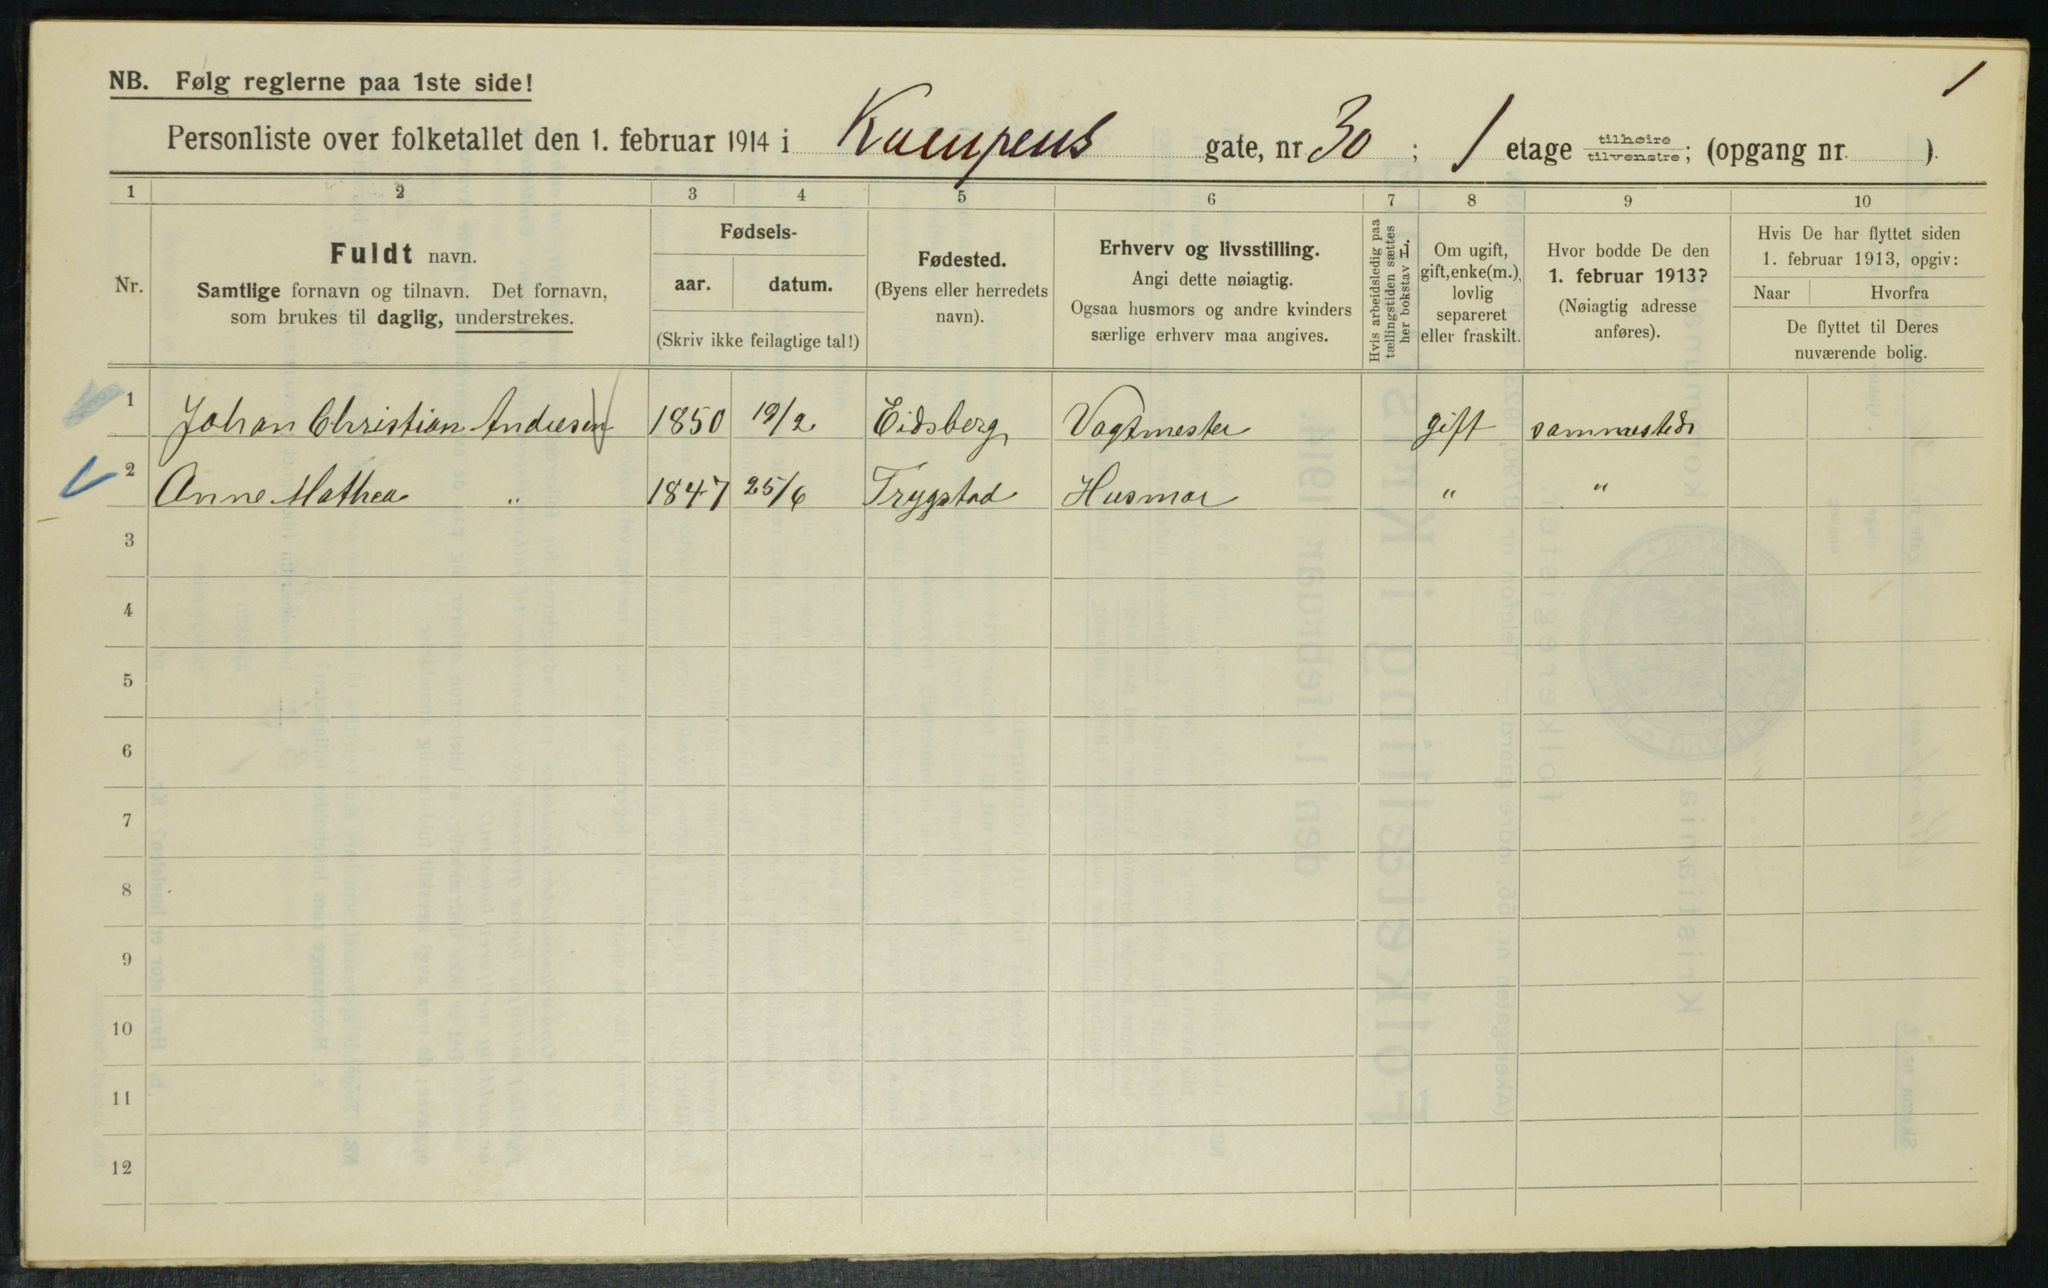 1
NB. Følg reglerne paa 1ste side!
Personliste over folketallet den 1. februar 1914 i Kampens gate, nr 30 ; 1 etage tilhøire/tilvenstre; (opgang nr. ).
1 2 3 4 5 6 7 8 9 10
Nr.
Fuldt navn.
Samtlige fornavn og tilnavn. Det fornavn,
som brukes til daglig, understrekes.
Fødsels-
aar. datum.
(Skriv ikke feilagtige tal!)
Fødested.
(Byens eller herredets
navn).
Erhverv og livsstilling.
Angi dette nøiagtig.
Ogsaa husmors og andre kvinders
særlige erhverv maa angives.
Hvis arbeidsledig paa
tællingstiden sættes
her bokstav L.
Om ugift,
gift, enke(m.),
lovlig
separeret
eller fraskilt.
Hvor bodde De den
1. februar 1913?
(Nøiagtig adresse
anføres).
Hvis De har flyttet siden
1. februar 1913, opgiv:
Naar Hvorfra
De flyttet til Deres
nuværende bolig.
1 Johan Christian Andresen 1850 19/2 Eidsberg Vagtmester gift sammesteds
2 Anne Mathea " 1847 25/6 Trygstad Husmor " "
3
4
5
6
7
8
9
10
11
12